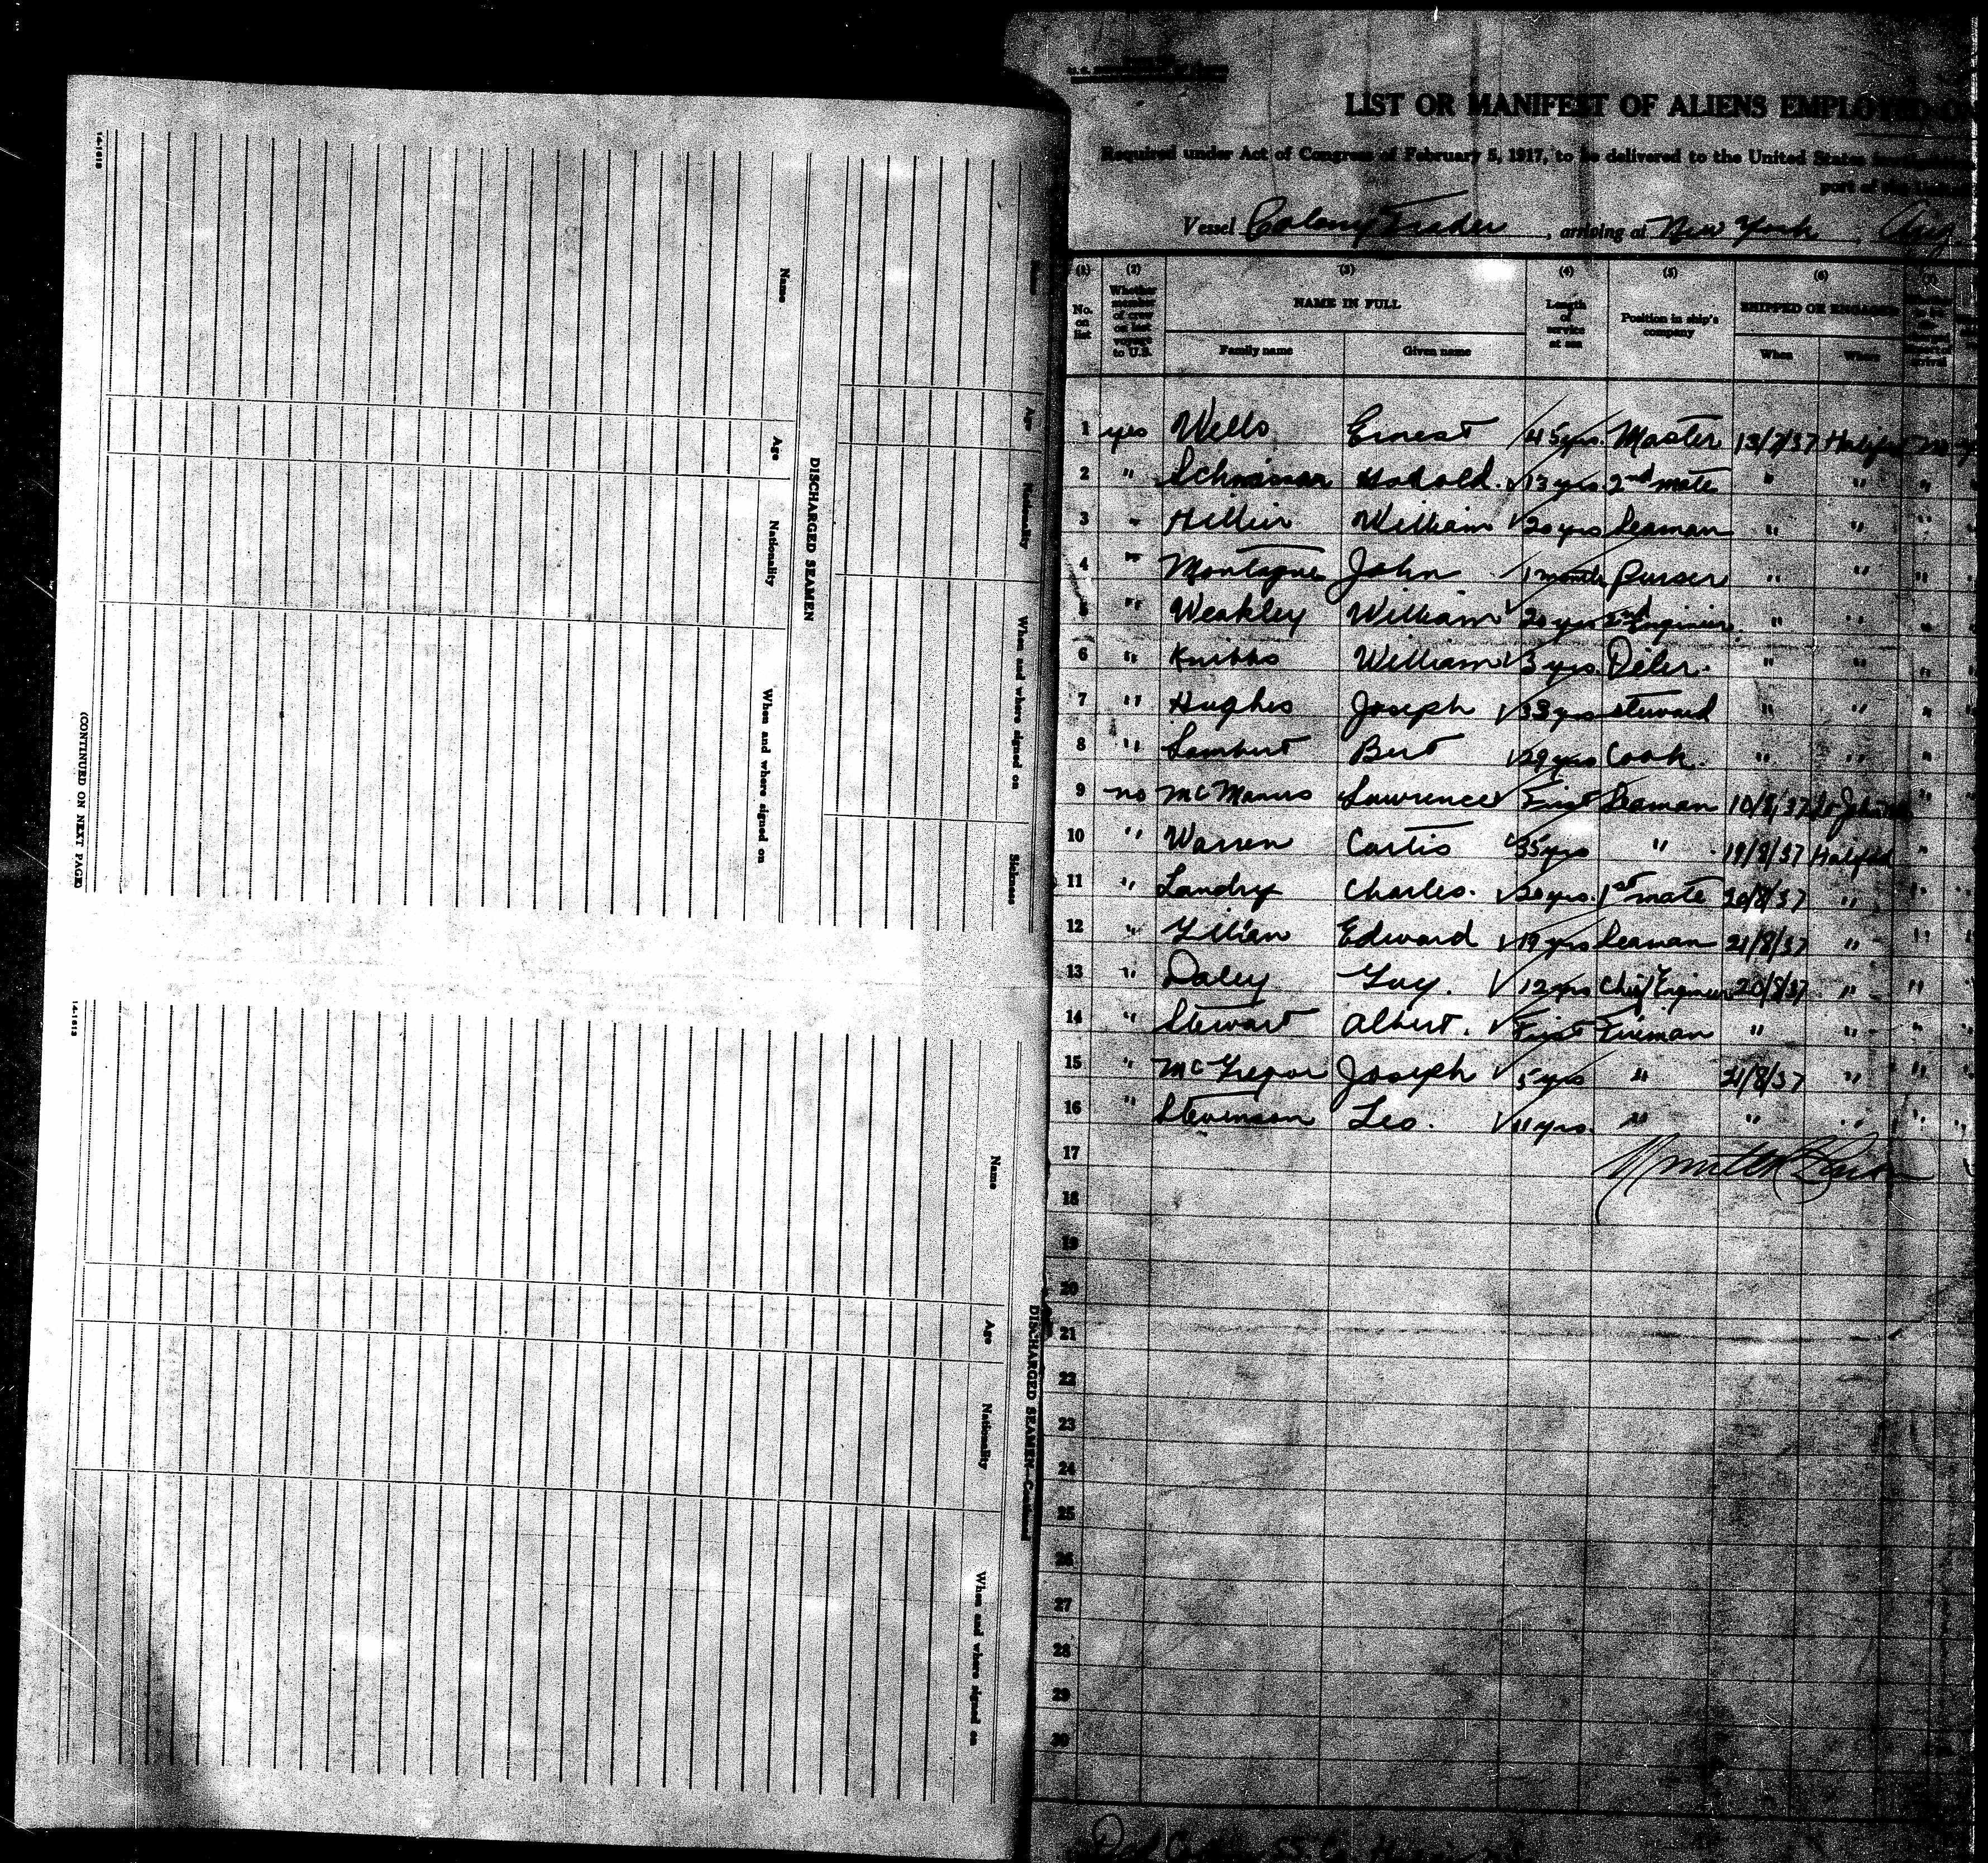 14-1613
Name
Age
Nationality
When and where signed on
Sickness
DISCHARGED SEAMEN
Name
Age
Nationality
When and where signed on
(CONTINUED ON NEXT PAGE)
14-1613
DISCHARGED SEAMEN—Continued
Name
Age
Nationality
When and where signed on
LIST OR MANIFEST OF ALIENS EMPLOYED
Required under Act of Congress of February 5, 1917, to be delivered to the United States
port of
Vessel Colony Trader, arriving at New York, Aug
(1) (2) (3) (4) (5) (6) (7)
No. on list Whether member of crew on last voyage to U.S. NAME IN FULL Length of service at sea Position in ship's company SHIPPED OR ENGAGED
Family name Given name When Where
1 yes Wells Ernest 45 yrs. Master 13/7/37 Halifax
2 " Harold 13 yrs. 2nd mate " " "
3 " William 20 yrs Seaman " " "
4 " Montague John 1 month Purser " " "
5 " Weakley William 20 yrs 2nd Engineer " " "
6 " Knibbs William 3 yrs. Oiler. " " "
7 " Hughes Joseph 33 yrs steward " " "
8 " Lambert Bert 29 yrs Cook. " " "
9 no McManus Lawrence First Seaman 10/8/37 St John "
10 " Warren Curtis 35 yrs " 19/8/37 Halifax "
11 " Landry Charles. 20 yrs. 1st mate 20/8/37 " "
12 " Edward 19 yrs Seaman 21/8/37 " "
13 " Daley Guy. 12 yrs Chief Engineer 20/8/37 " "
14 " Stewart Albert. First Fireman " " "
15 " McGregor Joseph 5 yrs " 21/8/37 " "
16 " Stevenson Leo. 11 yrs. " " " "
17
18
19
20
21
22
23
24
25
26
27
28
29
30